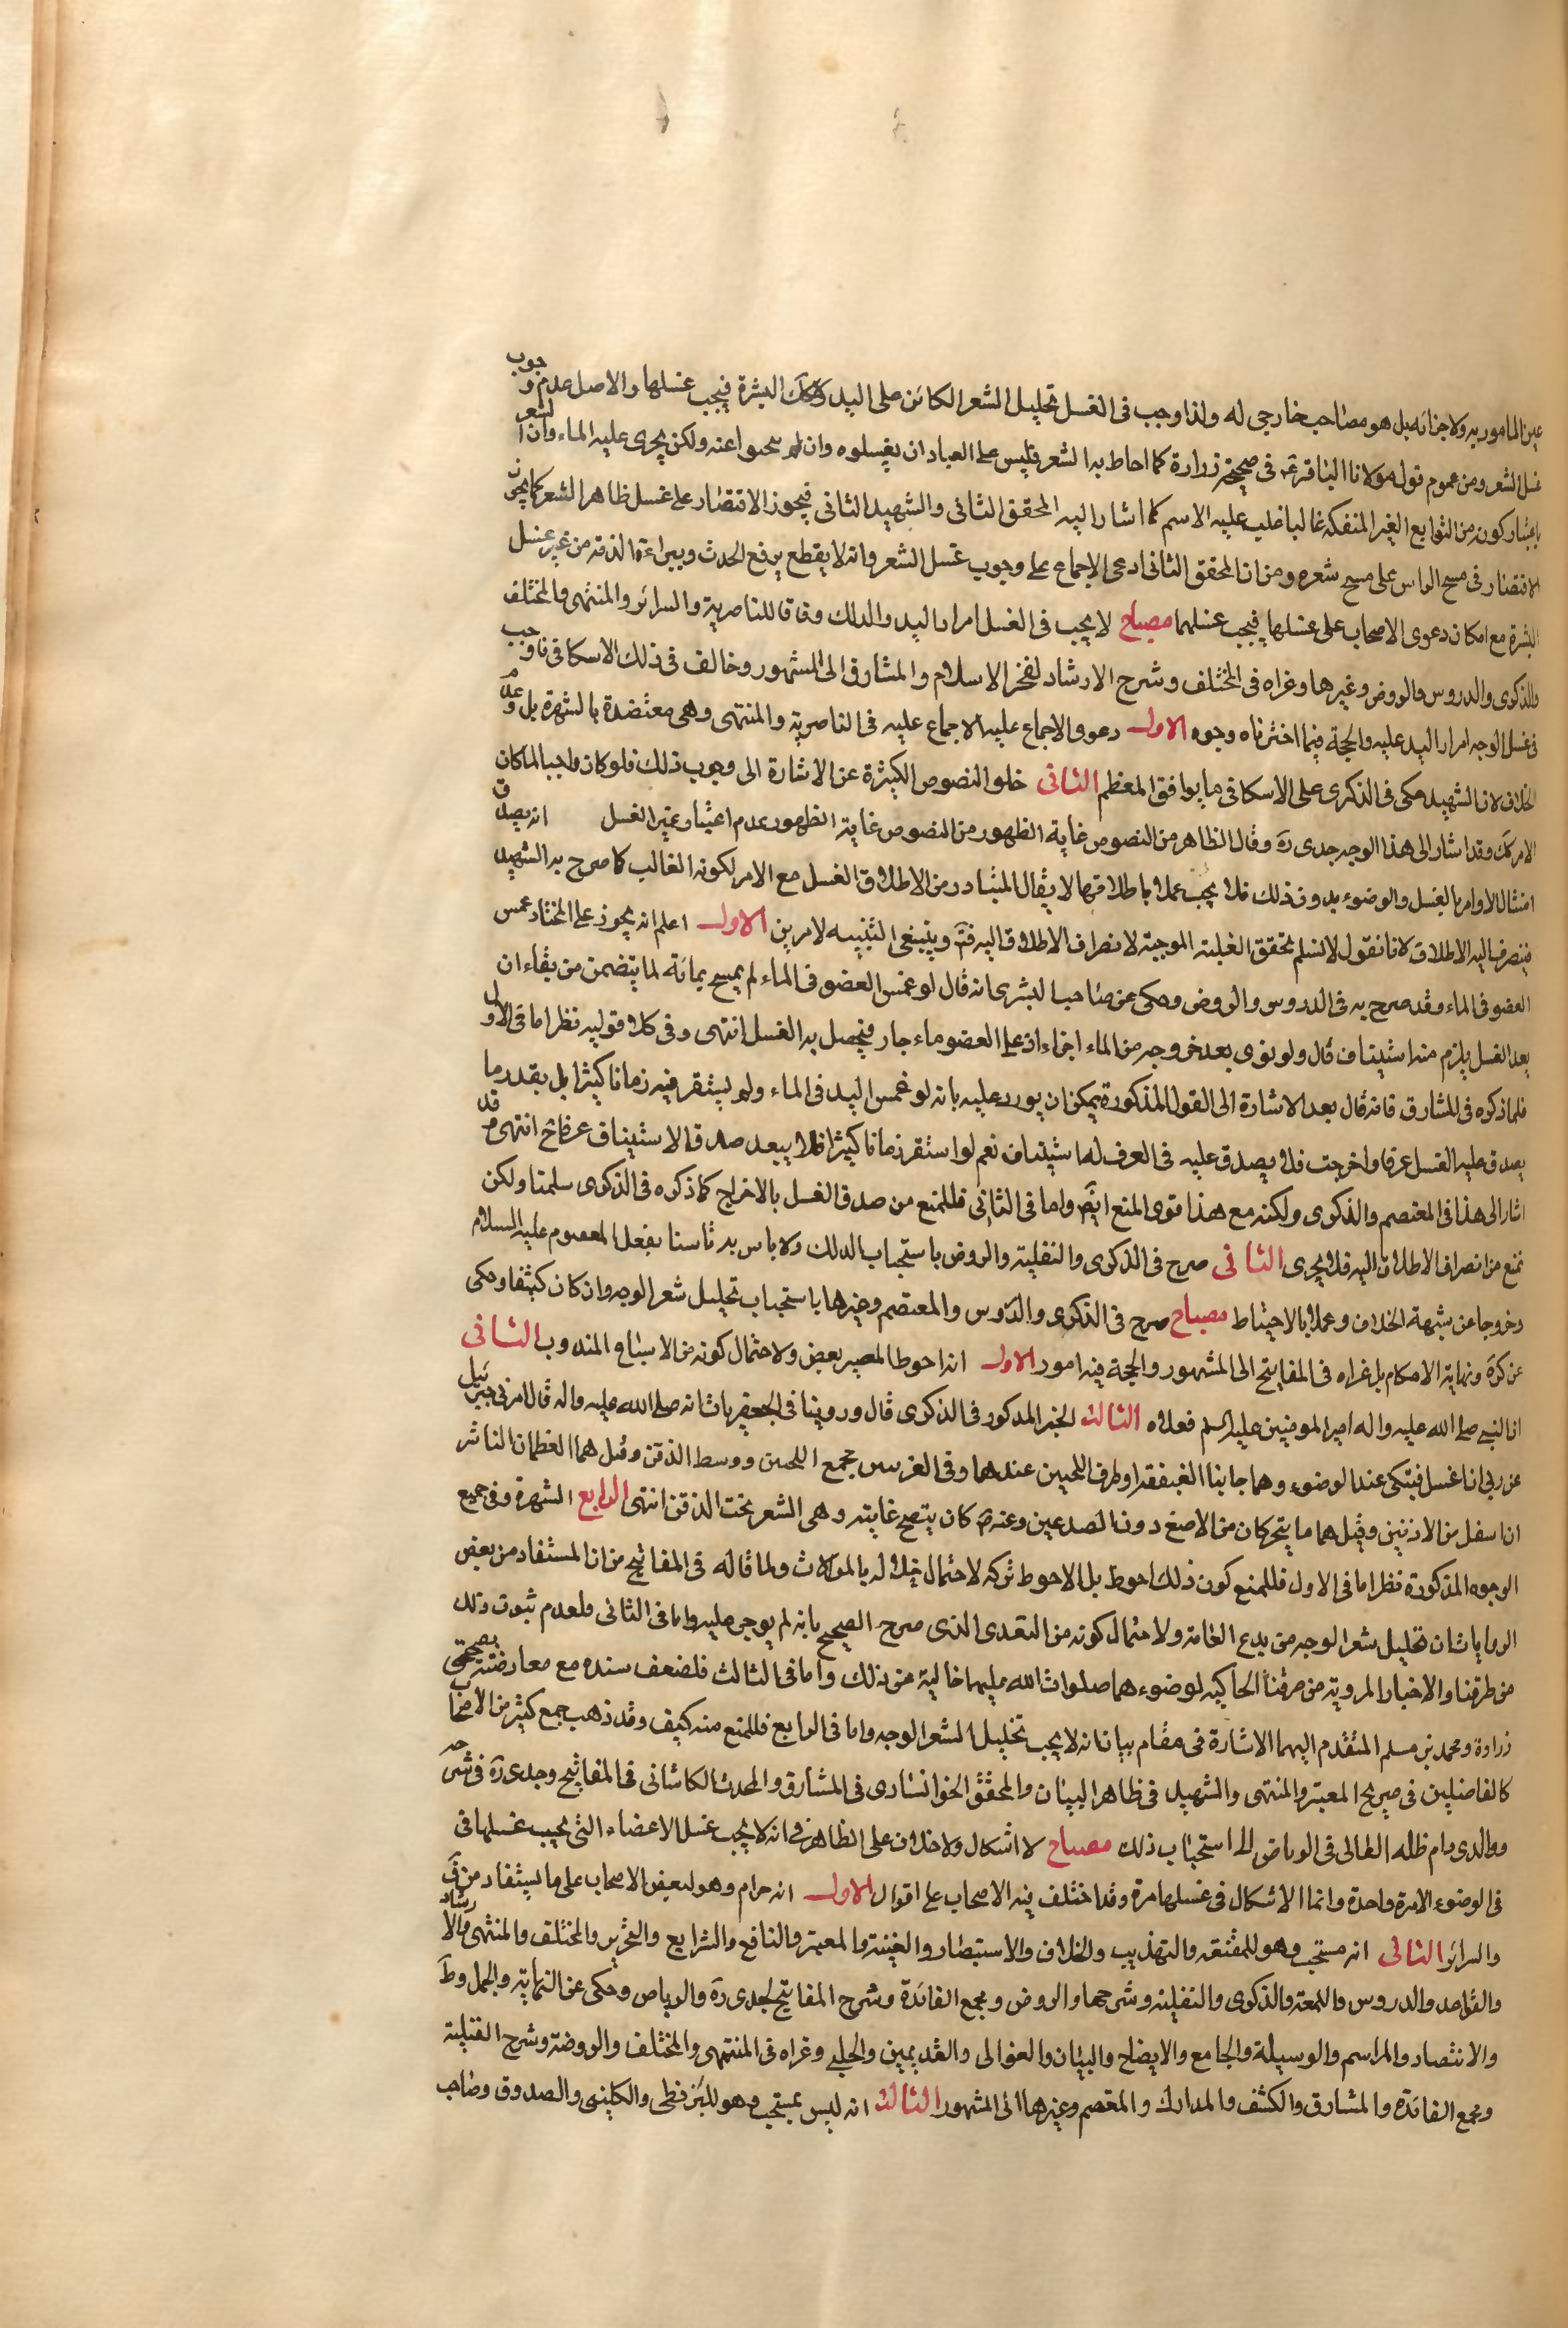 عين المامور به ولا جزائه بل هو مصاحب خارجي له ولذا وجب في الغسل تخليل الشعر الكائن على اليد وكك البشرة فيجب غسلها والاصل عدم وجوب
غسل الشعر ومن عموم قول مولانا الباقر ع في صحيحة زرارة كلما احاط به الشعر فليس على العباد ان يغسلوه وان يبحثوا عنه ولكن يجرى عليه الماء وان الشعر
باعتبار كونه من التوابع الغير المنفكة غالبا غلب عليه الاسم كما اشار اليه المحقق الثاني والشهيد الثاني فيجوز الاقتصار على غسل ظاهر الشعر كما يجوز
الاقتصار في مسح الراس على مسح شعره ومن ان المحقق الثاني ادعى الاجماع على وجوب غسل الشعر وانه لا يقطع برفع الحدث وببراءة الذمة من غير غسل
البشرة مع امكان دعوى الاصحاب على غسلها فيجب غسلهما مصباح لا يجب في الغسل امرار اليد والدلك وفاقا للناصرية والسرائر والمنتهى والمختلف
والذكرى والدروس والروض وغيرها وعزاه في المختلف وشرح الارشاد لفخر الاسلام والمشارق الى المشهور وخالف في ذلك الاسكافي فاوجب
في غسل الوجه امرار اليد عليه والحجة فيما اخترناه وجوه الاول دعوى الاجماع عليه الاجماع عليه في الناصرية والمنتهى وهي معتضدة بالشهرة بل وعدم
الخلاف لان الشهيد حكى في الذكرى على الاسكافي ما يوافق المعظم الثاني خلو النصوص الكثيرة عن الاشارة الى وجوب ذلك فلو كان واجبا لما كان
الامر كك وقد اشار الى هذا الوجه جدى ره وقال الظاهر من النصوص غاية الظهور من النصوص غاية الظهور عدم اعتبار غير الغسل انه يصدق
امتثال الاوامر بالغسل والوضوء بدون ذلك فلا يجب عملا باطلاقها لا يقال المتبادر من الاطلاق الغسل مع الامر لكونه الغالب كما صرح به الشهيد
فينصرف اليه الاطلاق لانا نقول لا نسلم تحقق الغلبة الموجبة لانصراف الاطلاق اليه فتم وينبغي التنبيه لامرين الاول اعلم انه يجوز على المختار غمس
العضو في الماء وقد صرح به في الدروس والروض وحكى عن صاحب البشرى انه قال لو غمس العضو في الماء لم يمسح بمائه لما يتضمن من بقاء ان
بعد الغسل يلزم منه استيناف قال ولو نوى بعد خروجه من الماء اجزاء ان على العضو ماء جار فيحصل به الغسل انتهى وفي كلا قوليه نظر اما في الاول
فلما ذكره في المشارق فانه قال بعد الاشارة الى القول المذكورة يمكن ان يورد عليه بانه لو غمس اليد في الماء ولم يستقر فيه زمانا كثيرا بل بقدر ما
يصدق عليه الغسل عرفا واخرجت فلا يصدق عليه في العرف له استيناف نعم لو استقر زمانا كثيرا فلا يبعد صدق الاستيناف عرفا ح انتهى وقد
اشار الى هذا في المعتصم والذكرى ولكنه مع هذا قوى المنع ايضا واما في الثاني فللمنع من صدق الغسل بالاخراج كما ذكره في الذكرى سلمنا ولكن
نمنع من انصراف الاطلاق اليه فلا يجرى الثاني صرح في الذكرى والنفلية والروض باستحباب الدلك ولا باس به تاسيا بفعل المعصوم عليه السلام
وخروجا عن شبهة الخلاف وعملا بالاحتياط مصباح صرح في الذكرى والدروس والمعتصم وغيرها باستحباب تخليل شعر الوجه وان كان كثيفا وحكى
عن كره ونهاية الاحكام بل عزاه في المفاتيح الى المشهور والحجة فيه امور الاول انه احوط المصير بعض ولاحتمال كونه من الاسباغ المندوب الثاني
ان النبي صلى الله عليه واله امير المومنين عليه السلم فعلاه الثالث الخبر المذكور في الذكرى قال وروينا في الجعفريات انه صلى الله عليه واله قال امرني جبرئيل
عن ربي ان اغسل فنيكي عند الوضوء وهما جانبا العنفقة او طرف اللحيين عندهما وفي الغريبين مجمع اللحيين ووسط الذقن وقيل هما العظمان الناشز
ان اسفل من الاذنين وقيل هما ما يتحركان من الاصغ دون الصدغين وعنه ص كان ينضح غابته وهي الشعر تحت الذقن انتهى الرابع الشهرة وفي جميع
الوجوه المذكورة نظر اما في الاول فللمنع كون ذلك احوط بل الاحوط تركه لاحتمال خلاله بالموالات ولما قاله في المفاتيح من ان المستفاد من بعض
الروايات ان تخليل شعر الوجه من بدع العامة ولاحتمال كونه من التعدى الذى صرح الصحيح بانه لم يوجر عليه واما في الثاني فلعدم ثبوت ذلك
من طرقنا والاخبار المروية من طرقنا الحاكية لوضوءهما صلوات الله عليهما خالية عن ذلك واما في الثالث فلضعف سنده مع معارضته بصحيحتي
زرارة ومحمد بن مسلم المتقدم اليهما الاشارة في مقام بيان انه لا يجب تخليل الشعر الوجه واما في الرابع فللمنع منه كيف وقد ذهب جمع كثير من الاصحاب
كالفاضلين في صريح المعتبر والمنتهى والشهيد في ظاهر البيان والمحقق الخوانسارى في المشارق والمحدث الكاشاني في المفاتيح وجدى ره في شرحه
ووالدى دام ظله العالى في الرياض الى استحباب ذلك مصباح لا اشكال ولا خلاف على الظاهر في انه لا يجب غسل الاعضاء التي يجب غسلها في
في الوضوء الا مرة واحدة وانما الاشكال في غسلها مرة وقد اختلف فيه الاصحاب على اقوال الاول انه حرام وهو لبعض الاصحاب على ما يستفاد من ف
والسرائر الثاني انه مستحب وهو للمقنعة والتهذيب والخلاف والاستبصار والغنية والمعتبر والنافع والشرايع والتحرير والمختلف والمنتهى والارشاد
والقواعد والدروس واللمعة والذكرى والنفلية وشرحها والروض ومجمع الفائدة وشرح المفاتيح لجدى ره والرياض وحكى عن النهاية والجمل وط
والانتصار والمراسم والوسيلة والجامع والايضاح والبيان والعوالى والقديمين والحلبي وعزاه في المنتهى والمختلف والروضة وشرح النفلية
ومجمع الفائدة والمشارق والكشف والمدارك والمعتصم وغيرها الى المشهور الثالث انه ليس بمستحب وهو للبزنطى والكليني والصدوق وصاحب